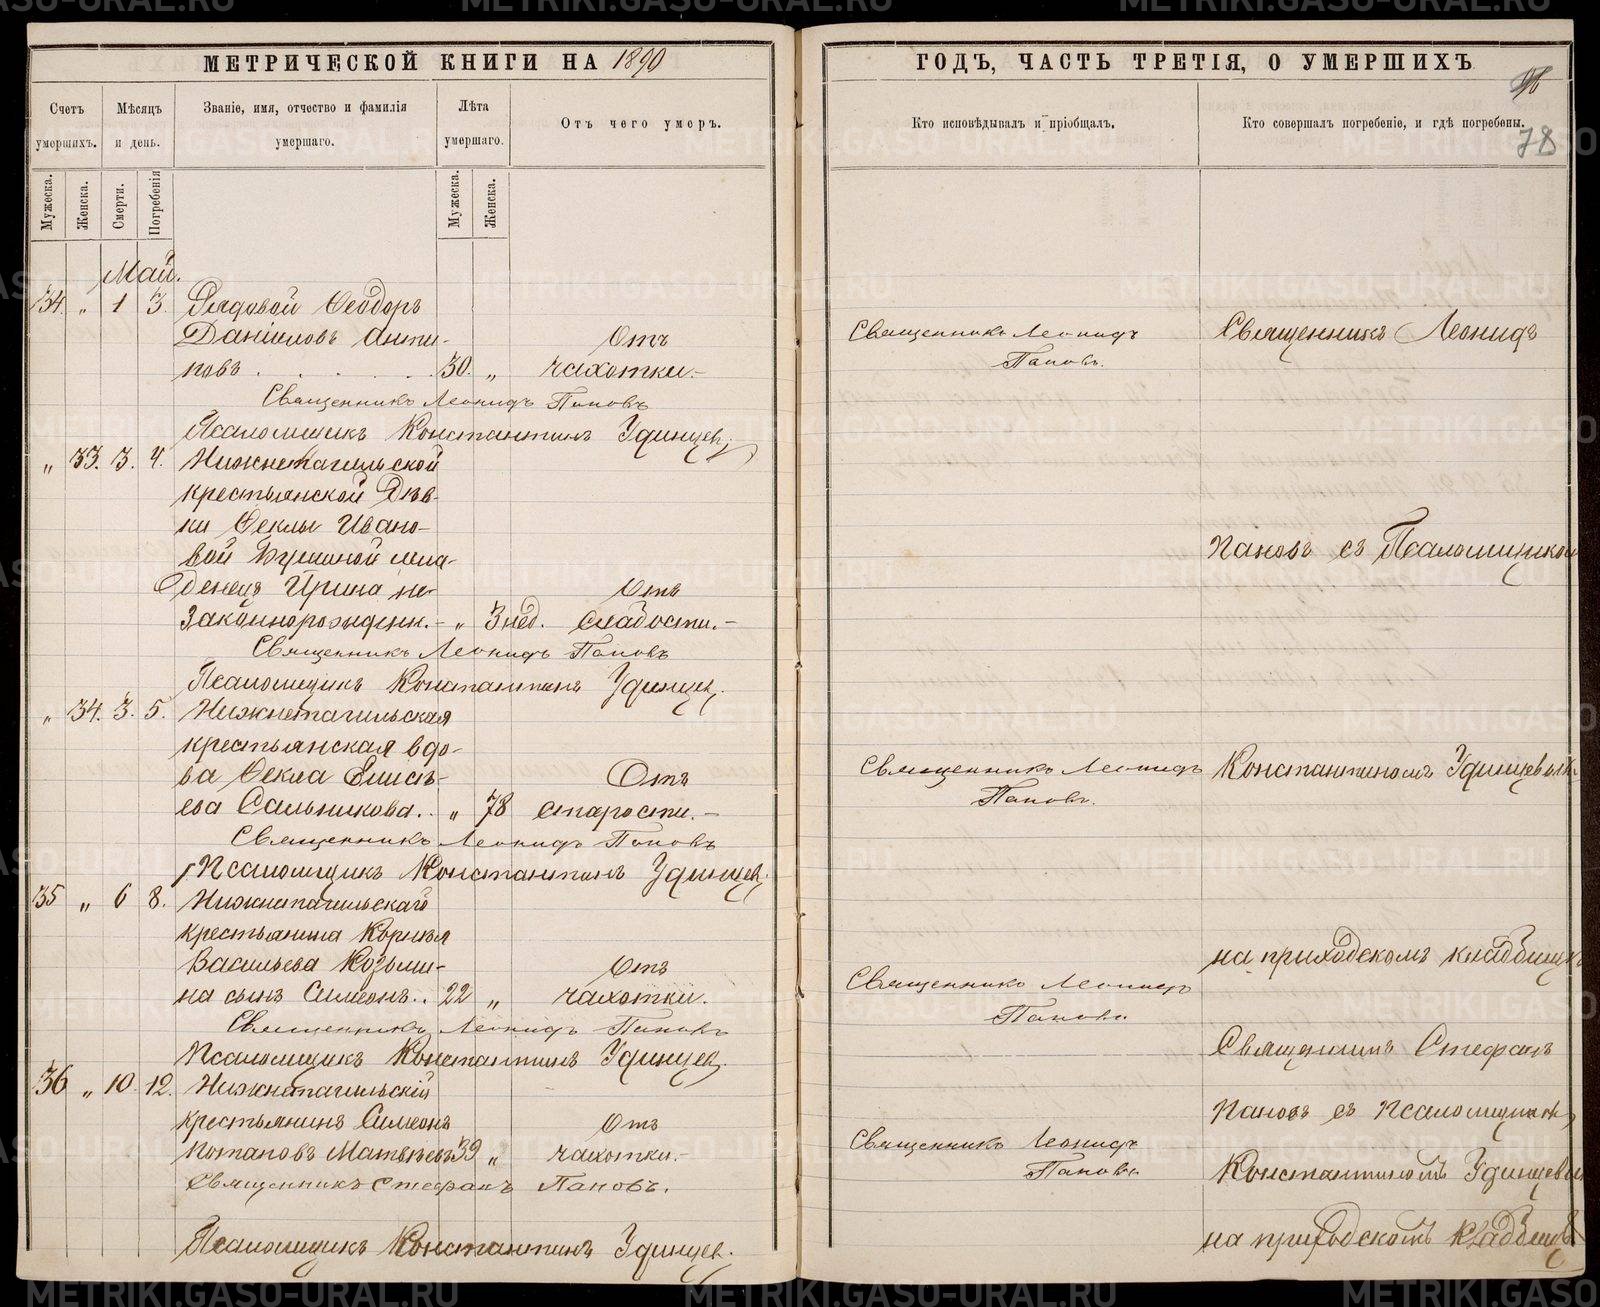 МЕТРИЧЕСКОЙ КНИГИ НА 1890
Счетъ умершихъ.
Мѣсяцъ и день.
Званіе, имя, отчество и фамилія умершаго.
Лѣта умершаго.
Отъ чего умеръ.
Мужеска.
Женска.
Смерти.
Погребенія
Мужеска.
Женска.
Май.
34. " 1 3. Рядовой Ѳеодоръ
Даніиловъ Анти-
повъ . . . . . 30. "
Отъ
чахотки.-
Священникъ Леонидъ Поповъ
Псаломщикъ Константинъ Удинцевъ
" 33. 3. 4. Нижнетагильской
крестьянской Дѣв-
ки Ѳеклы Ивано-
вой мла-
денецъ Ирина не-
законнорожденн.- " 3 нед.
Отъ
слабости.-
Священникъ Леонидъ Поповъ
Псаломщикъ Константинъ Удинцев.
" 34. 3. 5. Нижнетагильская
крестьянская вдо-
ва Ѳекла Елисѣ-
ева Сальникова.. " 78
Отъ
старости.-
Священникъ Леонидъ Поповъ
Псаломщикъ Константинъ Удинцев.
35 " 6 8. Нижнетагильскаго
крестьянина Корнила
Васильева Козьми-
на сынъ Симеонъ.. 22 "
Отъ
чахотки.
Священникъ Леонидъ Поповъ
Псаломщикъ Константинъ Удинцев.
36 " 10. 12. Нижнетагильскій
крестьянинъ Симеонъ
Потаповъ Матвѣевъ 39 "
Отъ
чахотки.-
Священникъ Стефанъ Поповъ.
Псаломщикъ Константинъ Удинцев.
ГОДЪ, ЧАСТЬ ТРЕТІЯ, О УМЕРШИХЪ
78
Кто исповѣдывалъ и пріобщалъ.
Кто совершалъ погребеніе, и гдѣ погребены.
Священникъ Леонидъ
Поповъ.
Священникъ Леонидъ
Поповъ.
Священникъ Леонидъ
Поповъ.
Священникъ Леонидъ
Поповъ.
Священникъ Леонидъ
Поповъ съ Псаломщикомъ
Константиномъ Удинцевымъ
на приходскомъ кладбищѣ
Священникъ Стефанъ
Поповъ съ псаломщикомъ
Константиномъ Удинцевым
на приходскомъ кладбищѣ
METRIKI.GASO-URAL.RU